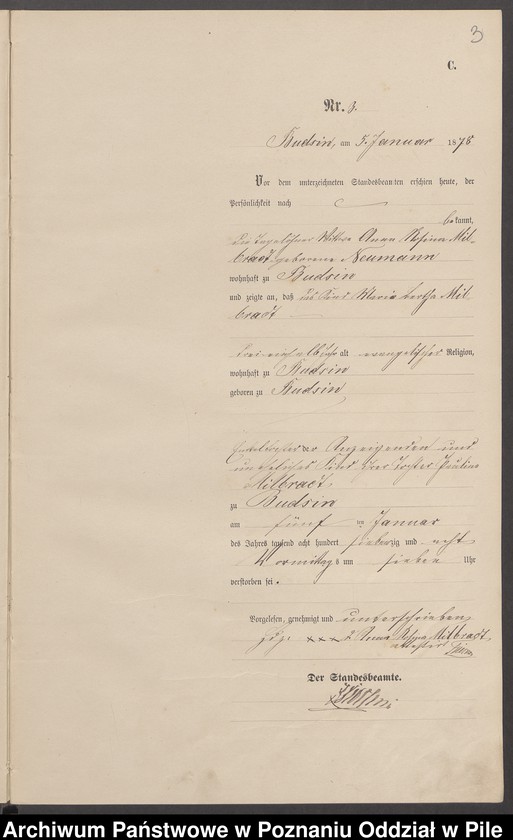 3
C.
Nr. 3.
Budsin, am 5. Januar 1878
Vor dem unterzeichneten Standesbeamten erschien heute, der
Persönlichkeit nach
bekannt,
die Tagelöhner Wittwe Anna Rosina Mil-
bradt geborene Neumann
wohnhaft zu Budsin
und zeigte an, daß das Kind Maria Bertha Mil
bradt
drei einhalb Jahr alt evangelischer Religion,
wohnhaft zu Budsin
geboren zu Budsin,
Enkeltochter der Anzeigenden und
uneheliches Kind ihrer Tochter Pauline
Milbradt,
zu Budsin
am fünf ten Januar
des Jahres tausend acht hundert siebenzig und acht
Vormittags um sieben Uhr
verstorben sei.
Vorgelesen, genehmigt und unterschrieben
xxx Anna Rosina Milbradt
Der Standesbeamte.
Archiwum Państwowe w Poznaniu Oddział w Pile